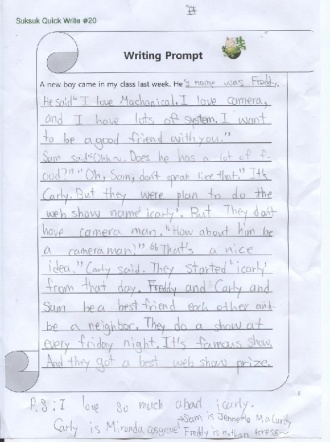 Suksuk Quick Write #20
Writing Prompt
A new boy came in my class last week. He's name was Freddy.
He said "I love Machanical. I love camera,
and I have lots of system. I want
to be a good friend with you."
Sam said "Does he has a lot of f-
ood?" "Oh, Sam, don't speak like that." It's
Carly. But they were plan to do the
web show name 'icarly'. But They don't
have camera man. "How about him be
a cameraman?" "That's a nice
idea." Carly said. They started 'icarly'
from that day. Freddy and Carly and
Sam be a best friend each other and
be a neighbor. They do a show at
every friday night. It's famous show.
And they got a best web show prize.
P.S: I love so much about icarly.
Carly is Miranda cosgrove Sam is Jennette McCurdy
Freddy is